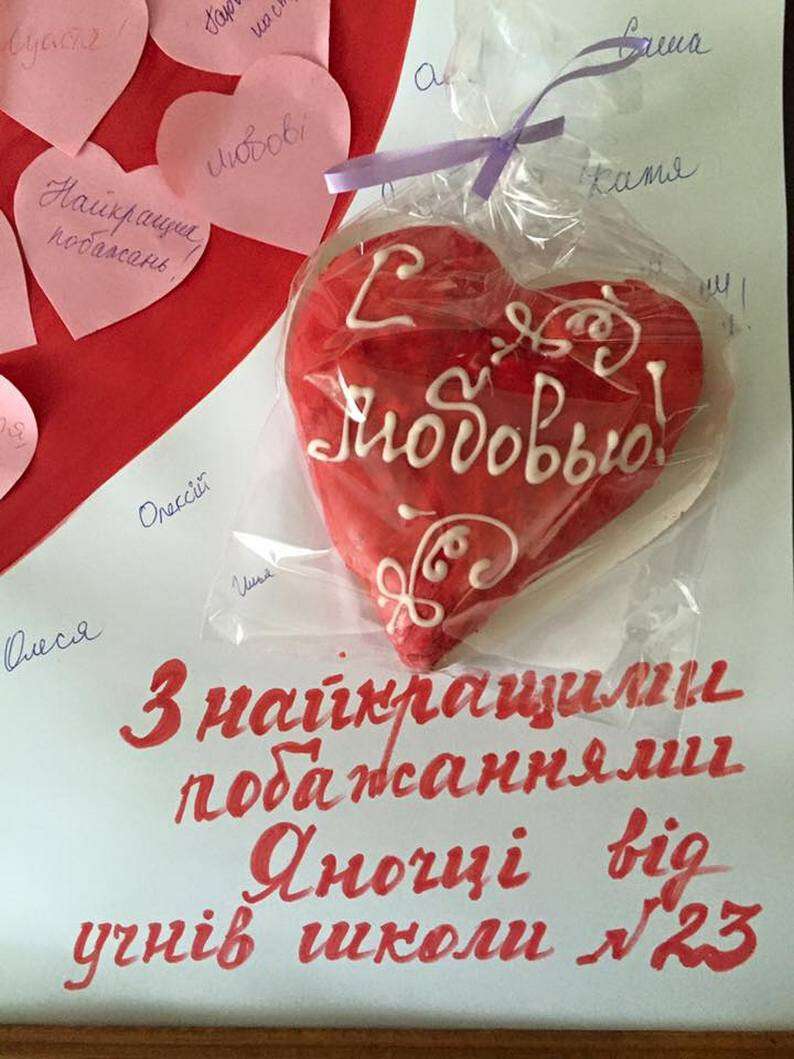 Любові
Найкращих
побажань!
Саша
Катя
С
Любовью!
Олексій
Олеся
З найкращими
побажаннями
Яночці від
учнів школи №23